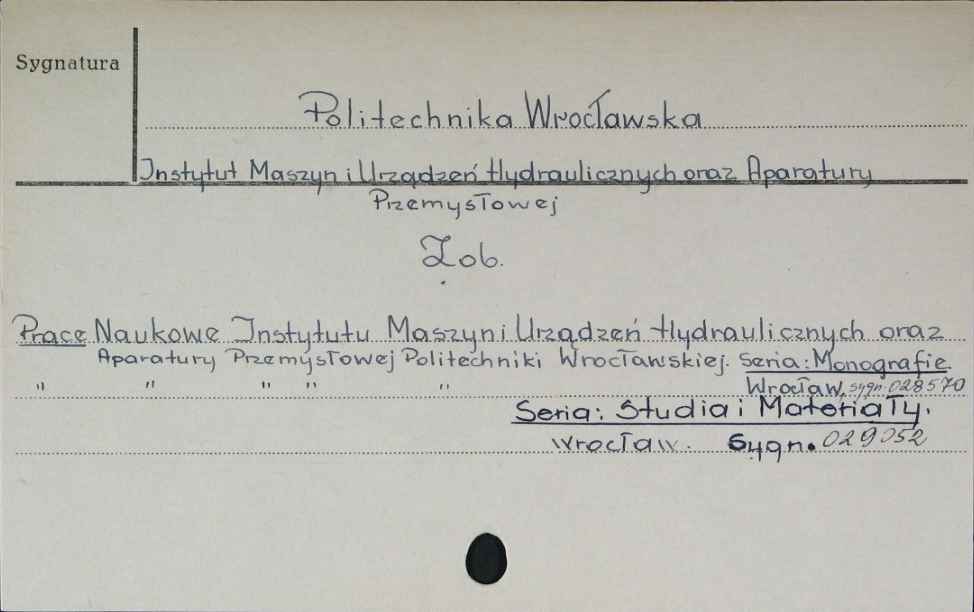 Sygnatura
Politechnika Wrocławska
Instytut Maszyn i Urządzeń Hydraulicznych oraz Aparatury
Przemysłowej
Zob.
Prace Naukowe Instytutu Maszyn i Urządzeń Hydraulicznych oraz
Aparatury Przemysłowej Politechniki Wrocławskiej. Seria: Monografie.
" " " " " Wrocław. sygn. 028570
Seria: Studia i Materiały.
Wrocław. Sygn. 029052